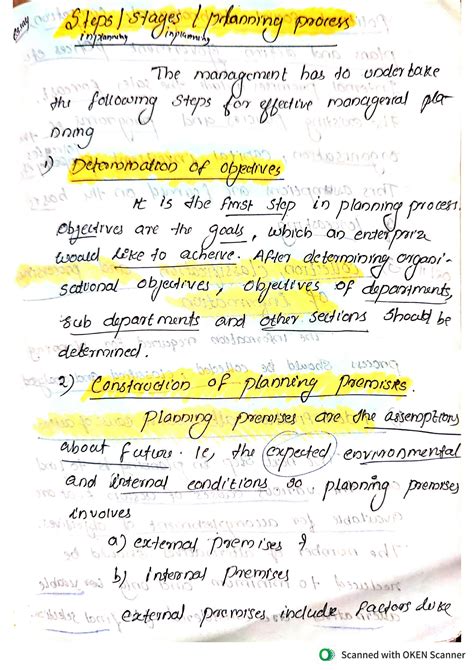 Essay
Steps / stages / planning process
in planning in planning
The management has to undertake
the following steps for effective managerial pla-
nning
1) Determination of objectives
It is the first step in planning process.
Objectives are the goals, which an enterprize
would like to acheive. After determining organi-
sational objectives, objectives of departments,
sub departments and other sections should be
determined.
2) Construction of planning premises.
Planning premises are the assemptions
about future. ie, the expected environmental
and internal conditions so planning premises
involves
a) external premises &
b) internal premises
external premises include factors like
Scanned with OKEN Scanner